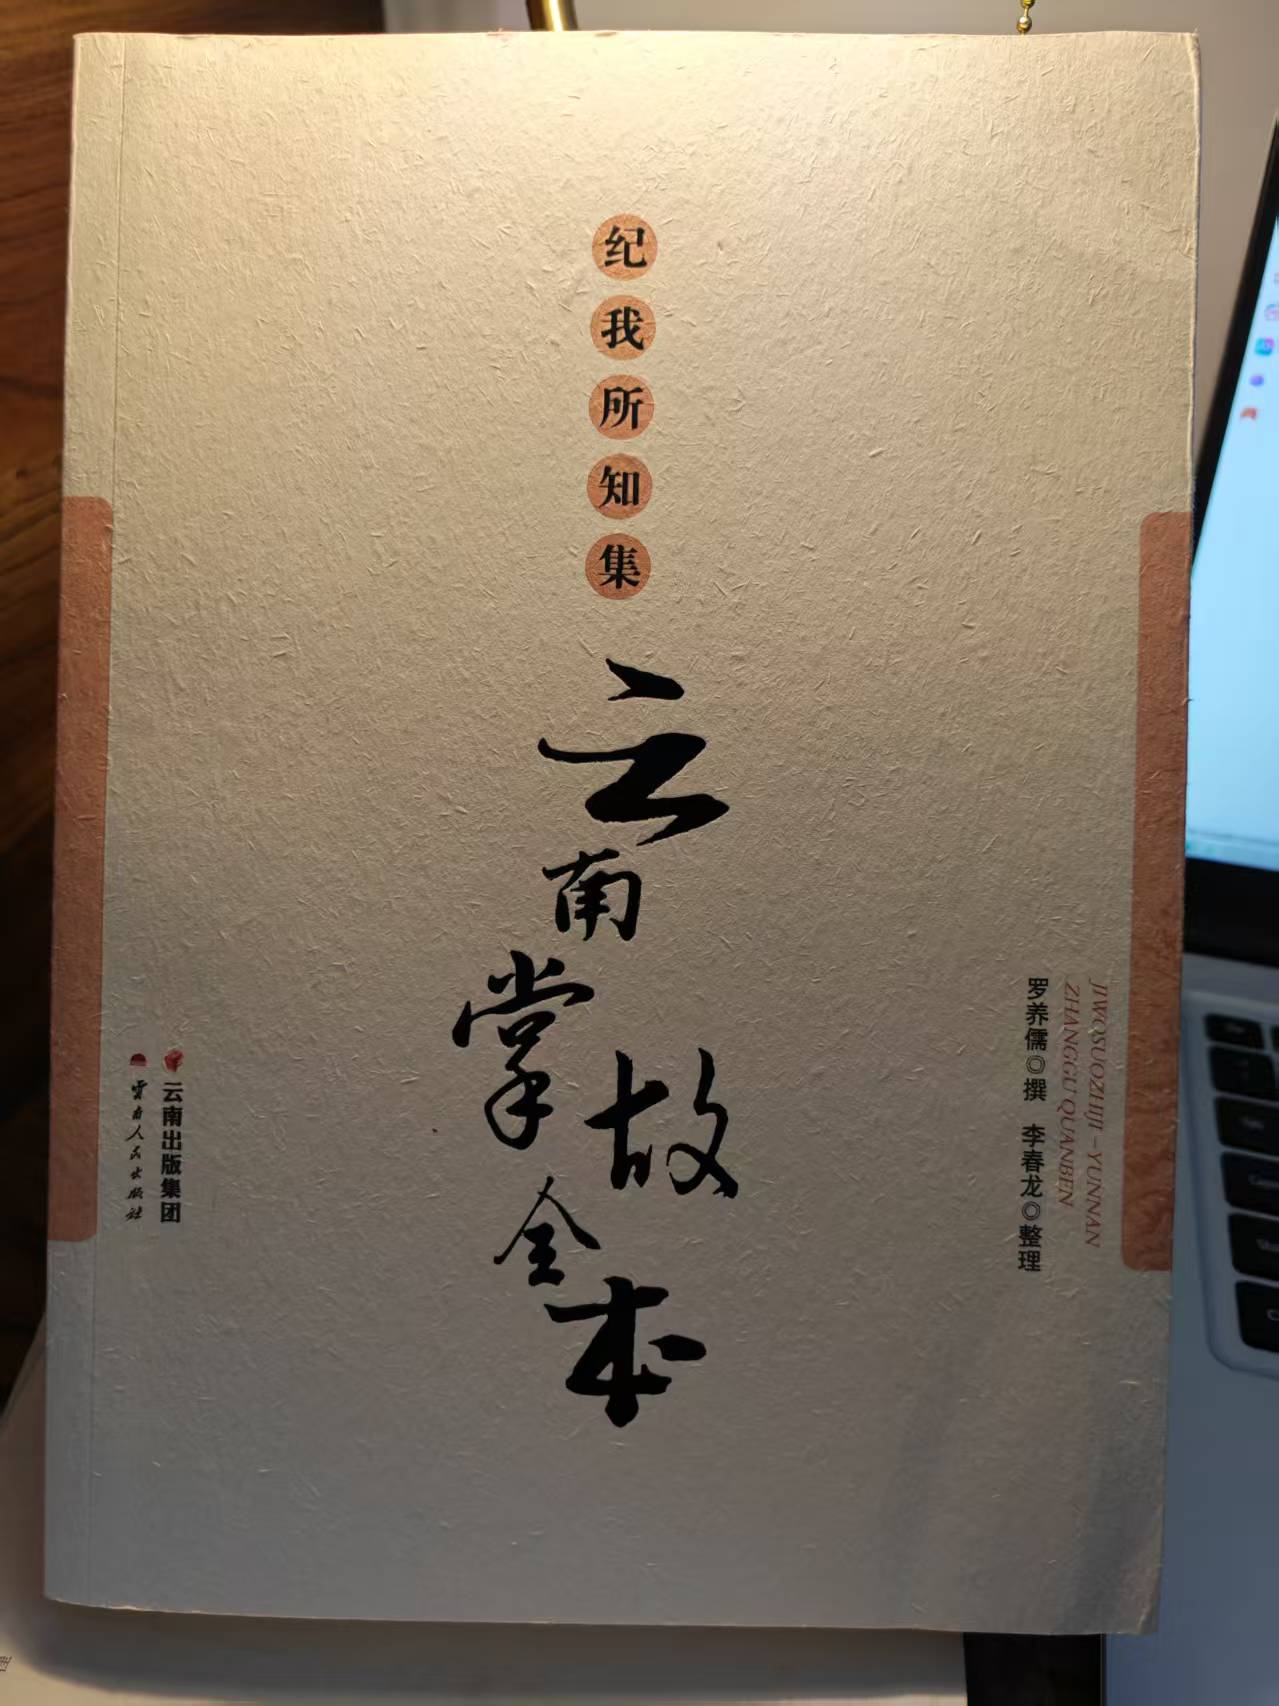 纪我所知集
云南掌故全本
JIWOSUOZHIJI－YUNNAN
ZHANGGU QUANBEN
罗养儒◎撰 李春龙◎整理
云南出版集团
雲南人民出版社